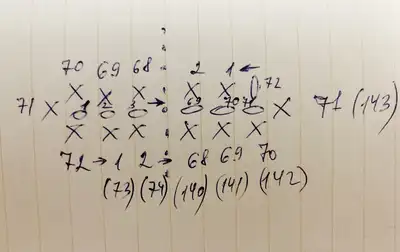 70 69 68 2 1 ←
X X X X X 72
71 X 1 2 3 → 69 70 71 X 71 (143)
X X X X X X
72 → 1 2 → 68 69 70
(73) (74) (140) (141) (142)